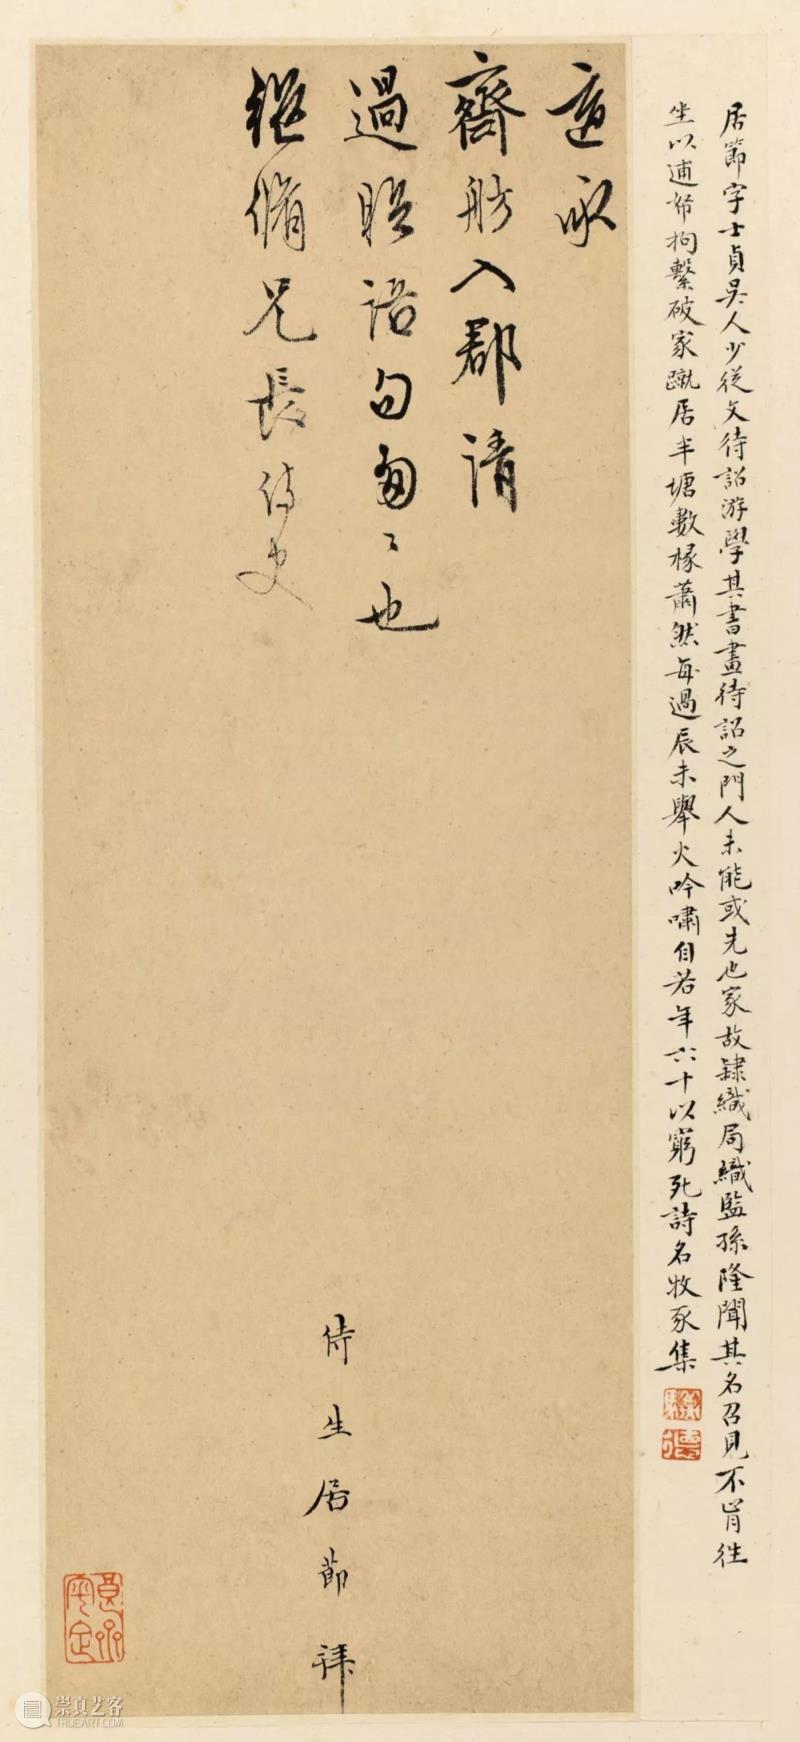 居節字士貞吳人少從文待詔游學其書畫待詔之門人未能或先也家故隸織局織監孫隆聞其名召見不肎往
坐以逋帑拘繫破家蹴居半塘數椽蕭然每過辰未舉火吟嘯自若年六十以窮死詩名牧豕集
適承
齋舫入郡請
過晤語勿匆〻也
繼脩兄長侍史
侍生居節拜
崇真艺客
TRUEART.COM